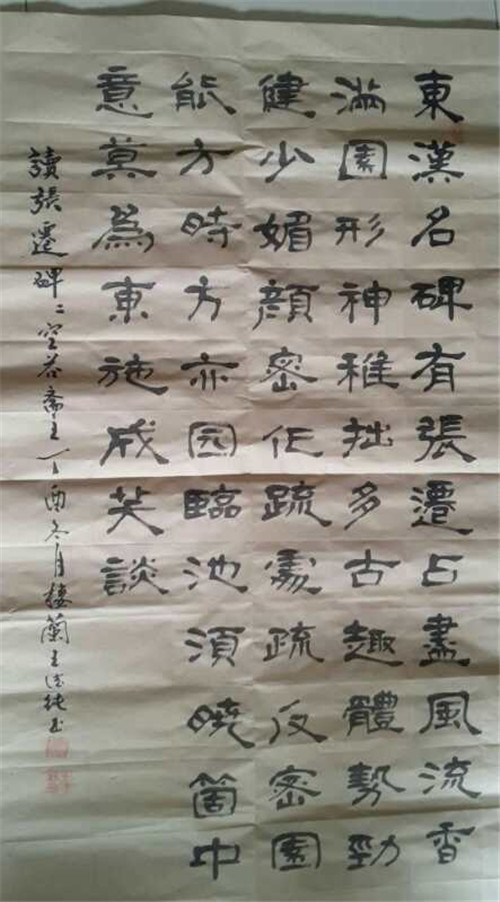 東漢名碑有張遷占盡風流香
滿園形神稚拙多古趣體勢勁
健少媚顏密化疏處疏反密圓
能方時方亦园臨池須曉箇中
意莫為東施成笑談
讀張遷碑空谷齋主丁酉冬月樓蘭王純书